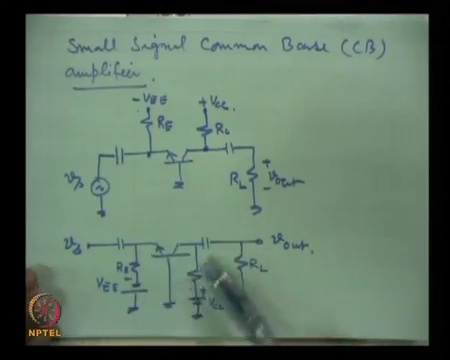 Small Signal Common Base (CB)
amplifier.
-VEE +VCC.
RE RC
vs RL + vout -
vs vout.
RE RL
VEE - + VCC
NPTEL